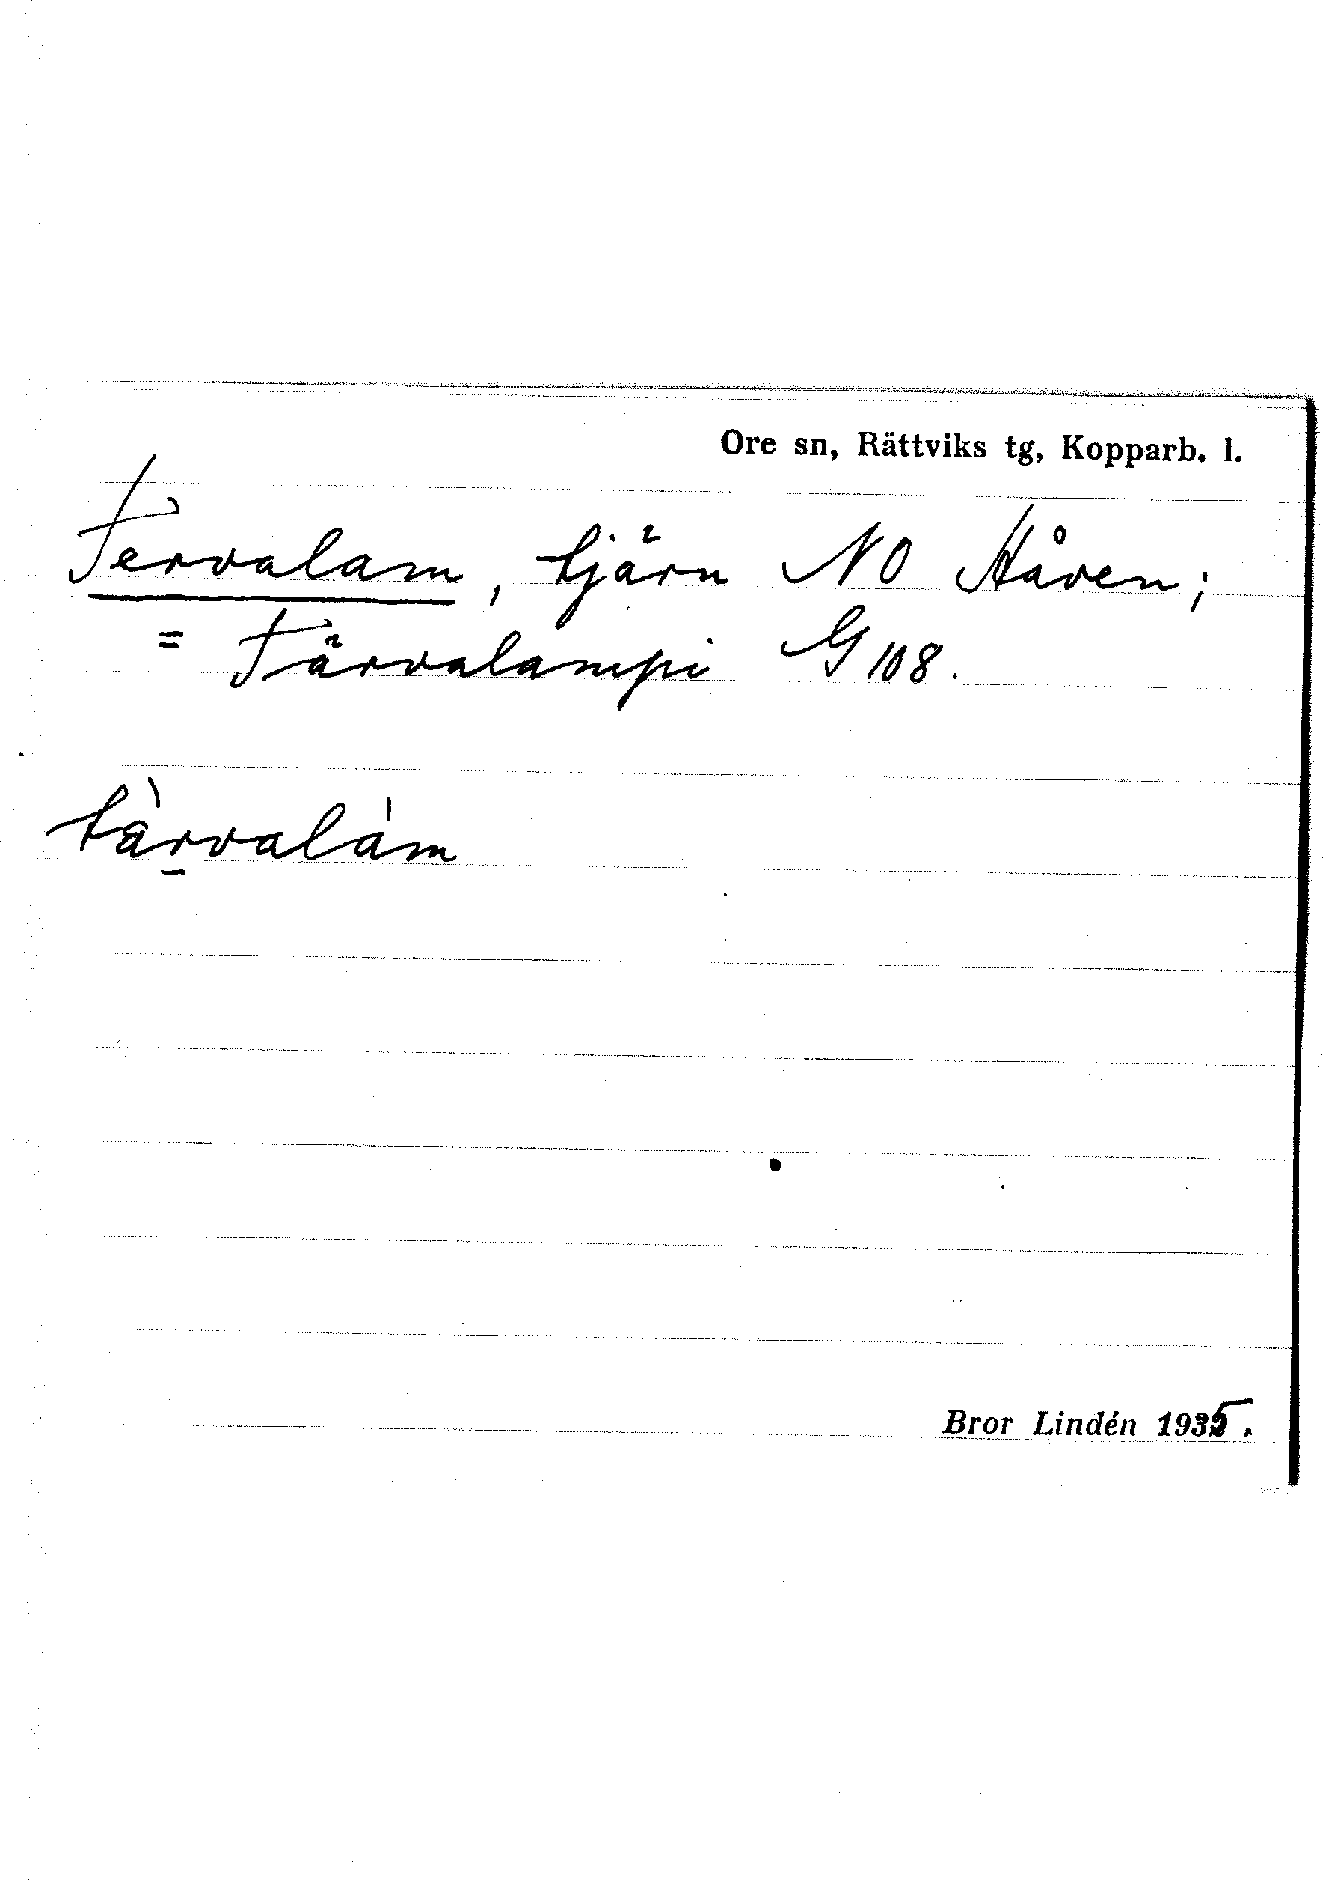 Ore sn, Rättviks tg, Kopparb. l.
Tervalam, tjärn NO Håven;
= Tärvalampi G 108.
tàrvalám
Bror Lindén 1935.